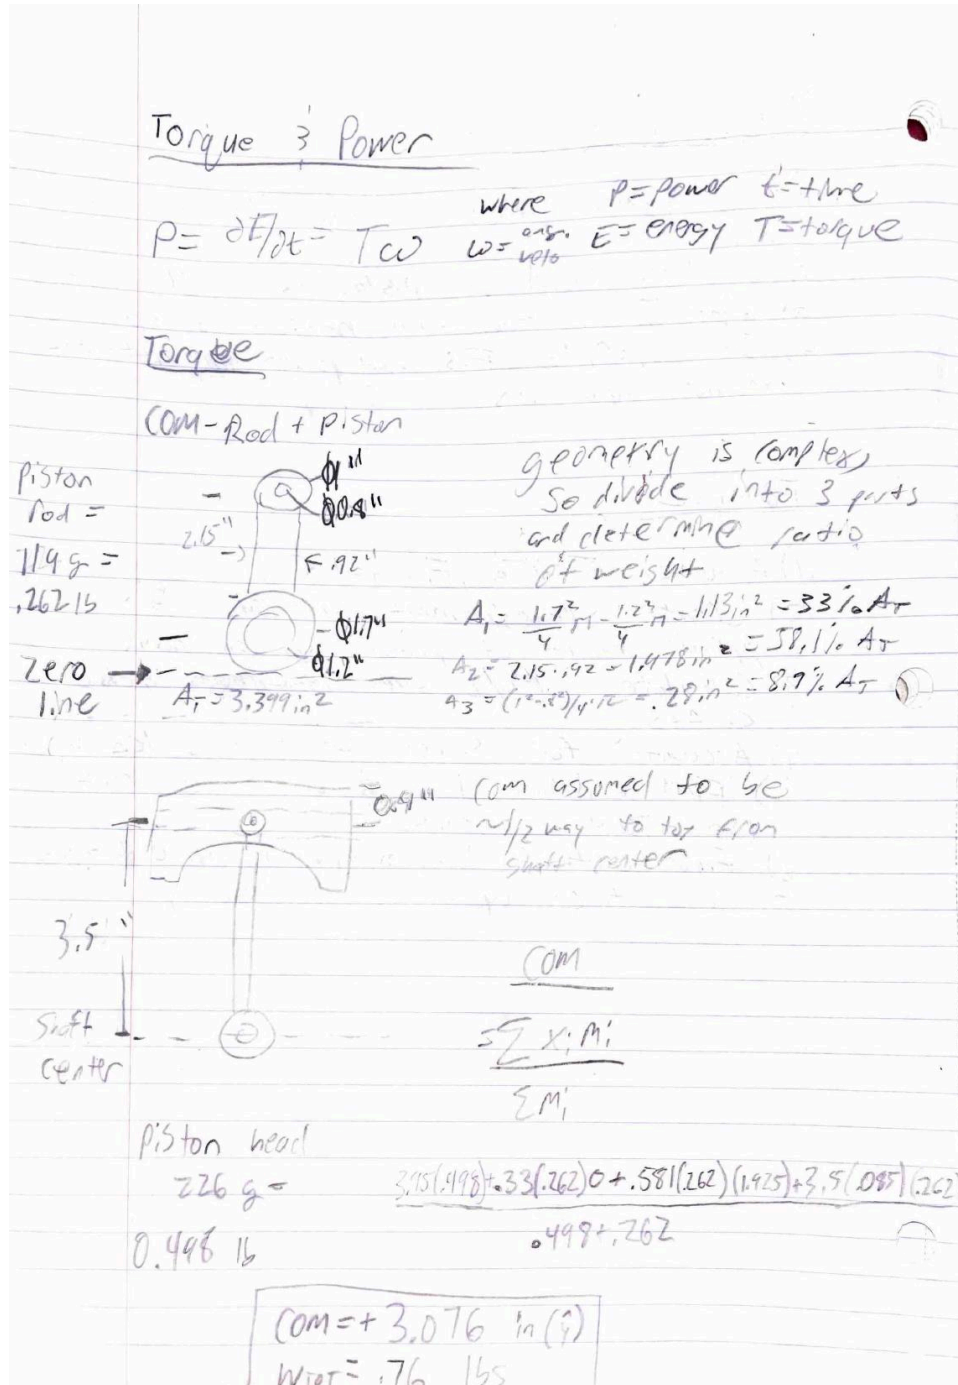 Torque & Power
where P=power t=time
P= ∂E/∂t = Tω ω= ang. velo E= energy T=torque
Torque
COM-Rod + Piston
Piston rod = 119 g = .262 lb
ϕ1"
ϕ0.8"
2.15" →
←.92"
ϕ1.7"
ϕ1.2"
zero line
A_T=3.399in²
geometry is complex,
so divide into 3 parts
and determine ratio
of weight
A₁ = 1.7²/4 π - 1.2²/4 π = 1.13in² = 33% A_T
A₂ = 2.15·.92 = 1.978in² = 58.1% A_T
A₃ = (1²-.8²)/4·π = .28in² = 8.9% A_T
0.9"
com assumed to be
~1/2 way to top from
shaft center
3.5"
shaft center
COM
= Σ xᵢ Mᵢ
Σ Mᵢ
Piston head
226 g =
0.498 lb
3.95(.498)+.33(.262)0+.581(.262)(1.925)+3.5(.085)(.262
.498+.262
COM=+3.076 in (ĵ)
W_TOT= .76 lbs